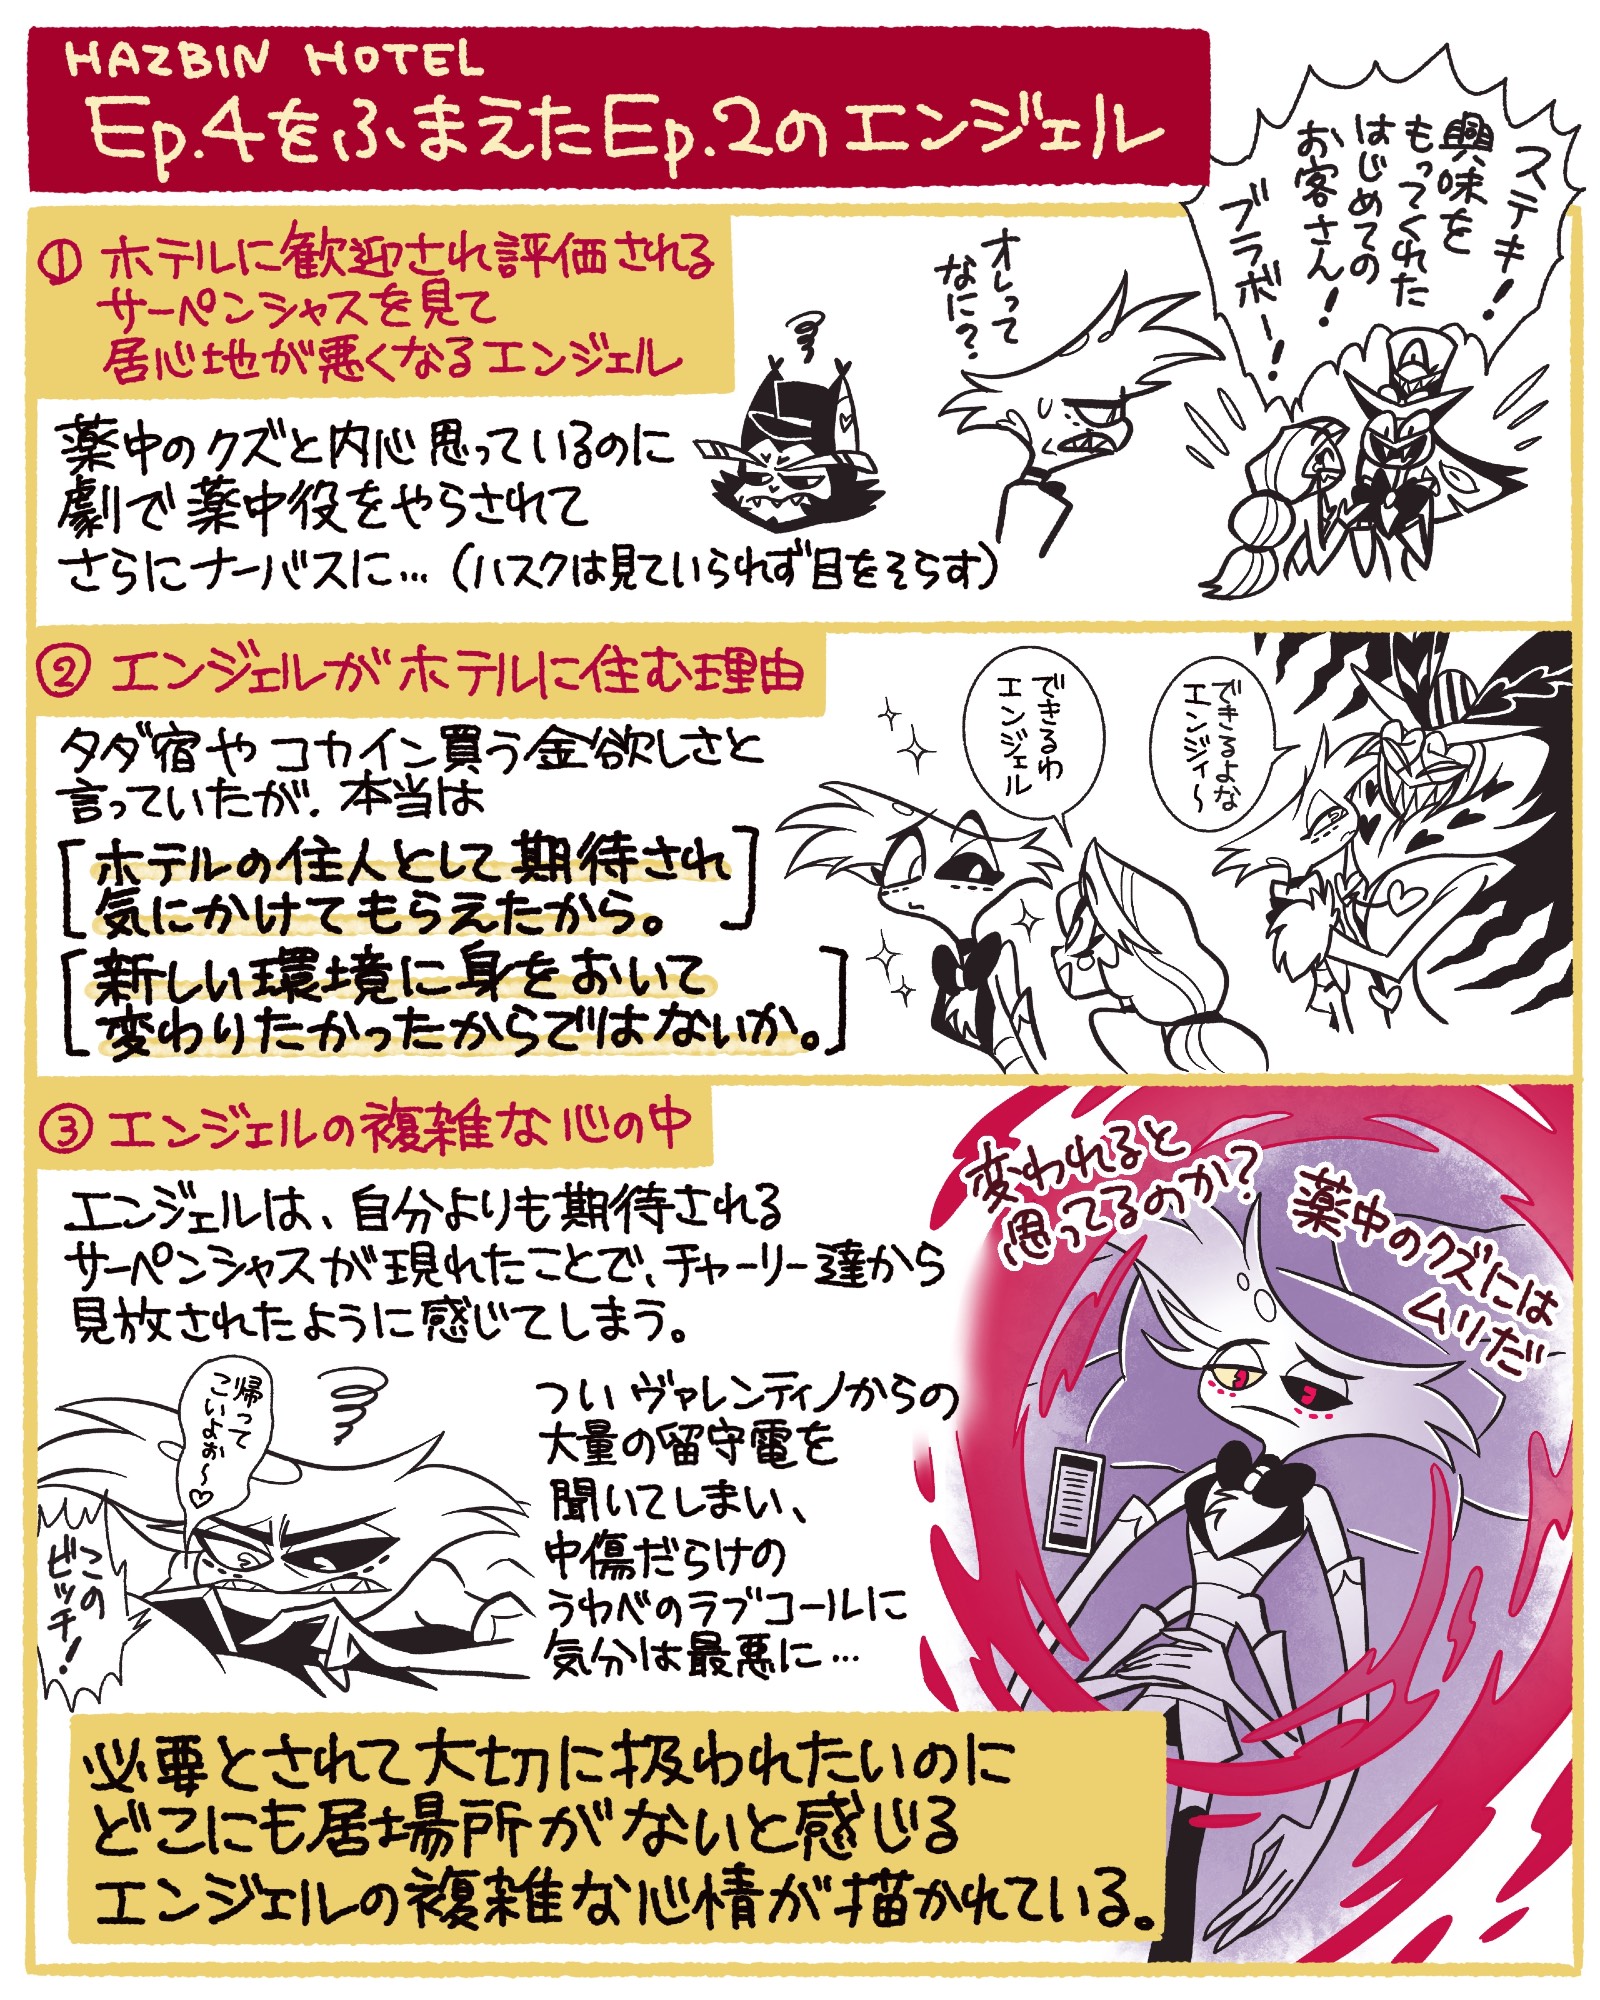 HAZBIN HOTEL
Ep.4をふまえたEp.2のエンジェル
① ホテルに歓迎され評価される
サーペンシャスを見て
居心地が悪くなるエンジェル
ステキ!
興味を
もってくれた
はじめての
お客さん!
ブラボー!
オレって
なに?
薬中のクズと内心思っているのに
劇で薬中役をやらされて
さらにナーバスに…(ハスクは見ていられず目をそらす)
② エンジェルがホテルに住む理由
タダ宿やコカイン買う金欲しさと
言っていたが、本当は
[ホテルの住人として期待され
気にかけてもらえたから。]
[新しい環境に身をおいて
変わりたかったからではないか。]
できるよな
エンジィ〜
できるわ
エンジェル
③ エンジェルの複雑な心の中
エンジェルは、自分よりも期待される
サーペンシャスが現れたことで、チャーリー達から
見放されたように感じてしまう。
変われると
思ってるのか?
薬中のクズには
ムリだ
帰って
こいよぉ〜♡
この
ビッチ!
つい ヴァレンティノからの
大量の留守電を
聞いてしまい、
中傷だらけの
うわべのラブコールに
気分は最悪に…
必要とされて大切に扱われたいのに
どこにも居場所がないと感じる
エンジェルの複雑な心情が描かれている。